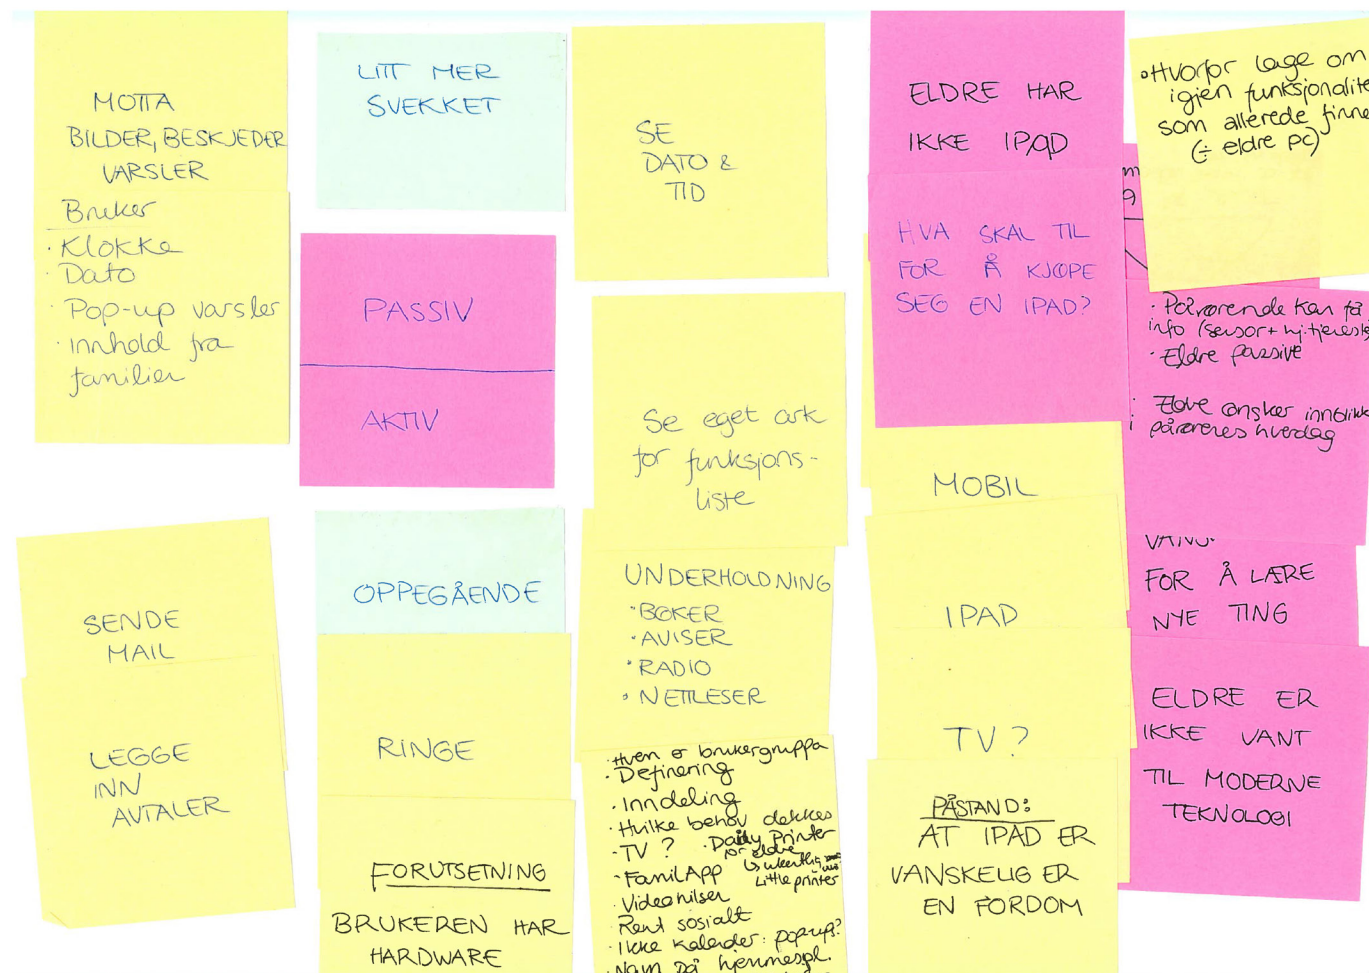 MOTTA
BILDER, BESKJEDER
VARSLER
Bruker
· Klokke
· Dato
· Pop-up varsler
· innhold fra
familier
SENDE
MAIL
LEGGE
INN
AVTALER
LITT MER
SVEKKET
PASSIV
AKTIV
OPPEGÅENDE
RINGE
FORUTSETNING
BRUKEREN HAR
HARDWARE
SE
DATO &
TID
Se eget ark
for funksjons-
liste
UNDERHOLDNING
· BØKER
· AVISER
· RADIO
· NETTLESER
· Hvem er brukergruppa
· Definering
· Inndeling
· Hvilke behov dekkes
· TV ? · Daily Printer
for eldre
· FamilApp
Little printer
· Videohilsen
Rent sosialt
· Ikke kalender: pop-ups?
· Navn på hjemmespl.
ELDRE HAR
IKKE IPAD
HVA SKAL TIL
FOR Å KJØPE
SEG EN IPAD?
MOBIL
IPAD
TV ?
PÅSTAND:
AT IPAD ER
VANSKELIG ER
EN FORDOM
· Hvorfor lage om
igjen funksjonalite
som allerede finne
(÷ eldre PC)
· Pårørende kan få
info (sensor + hj.tjeneste
· Eldre passive
· Eldre ønsker innblikk
i pårørenes hverdag
FOR Å LÆRE
NYE TING
ELDRE ER
IKKE VANT
TIL MODERNE
TEKNOLOGI